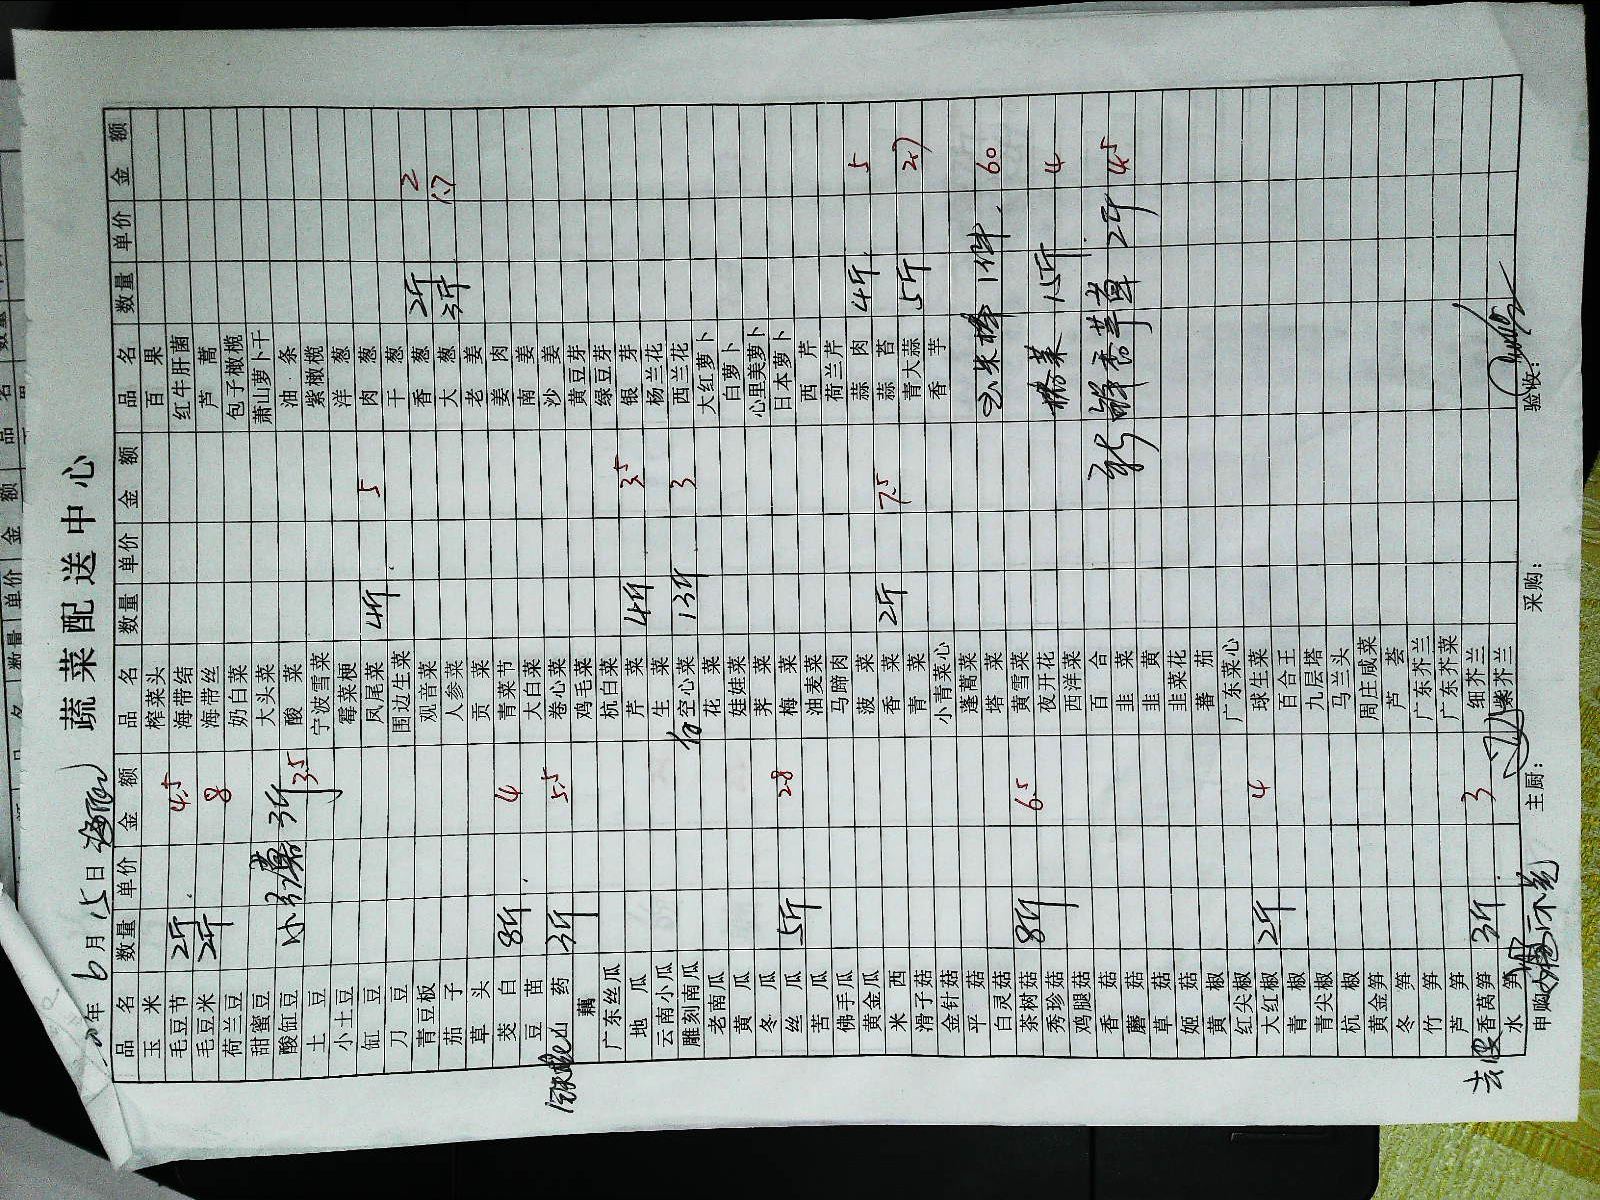 蔬菜配送中心
年 6月15日
品名 数量 单价 金额 品名 数量 单价 金额 品名 数量 单价 金额
玉米 榨菜头 百果
毛豆节 2斤 4.5 海带结 红牛肝菌
毛豆米 2斤 8 海带丝 芦蒿
荷兰豆 奶白菜 包子橄榄
甜蜜豆 大头菜 萧山萝卜干
酸缸豆 小 3斤 3.5 酸菜 油条
土豆 宁波雪菜 紫橄榄
小土豆 霉菜梗 洋葱
缸豆 凤尾菜 4斤 5 肉葱
刀豆 围边生菜 干葱
青豆板 观音菜 香葱 2斤 2
茄子 人参菜 大葱 3斤 1.7
草头 贡菜 老姜
茭白 8斤 4 青菜节 姜肉
豆苗 大白菜 南姜
药 3斤 5.5 卷心菜 沙姜
藕 鸡毛菜 黄豆芽
广东丝瓜 杭白菜 绿豆芽
地瓜 芹菜 4斤 3.5 银芽
云南小瓜 生菜 杨兰花
雕刻南瓜 空心菜 13斤 3 西兰花
老南瓜 花菜 大红萝卜
黄瓜 娃娃菜 白萝卜
冬瓜 荠菜 心里美萝卜
丝瓜 5斤 2.8 梅菜 日本萝卜
苦瓜 油麦菜 西芹
佛手瓜 马蹄肉 荷兰芹
黄金瓜 菠菜 蒜肉 4斤 5
米西 香菜 2斤 7.5 蒜苔
滑子菇 青菜 青大蒜 5斤 2.7
金针菇 小青菜心 香芋
平菇 蓬蒿菜
白灵菇 塔菜 玉米棒 1件 60
茶树菇 8斤 6.5 黄雪菜
秀珍菇 夜开花 榨菜 15斤 4
鸡腿菇 西洋菜
香菇 百合 新鲜香草 2斤 4.5
蘑菇 韭菜
草菇 韭黄
姬菇 韭菜花
黄椒 蕃茄
红尖椒 广东菜心
大红椒 2斤 4 球生菜
青椒 百合王
青尖椒 九层塔
杭椒 马兰头
黄金笋 周庄咸菜
冬笋 芦荟
竹笋 广东芥兰
芦笋 广东芥菜
香莴笋 3斤 3 细芥兰
水笋 紫芥兰
申购 主厨: 采购: 验收: